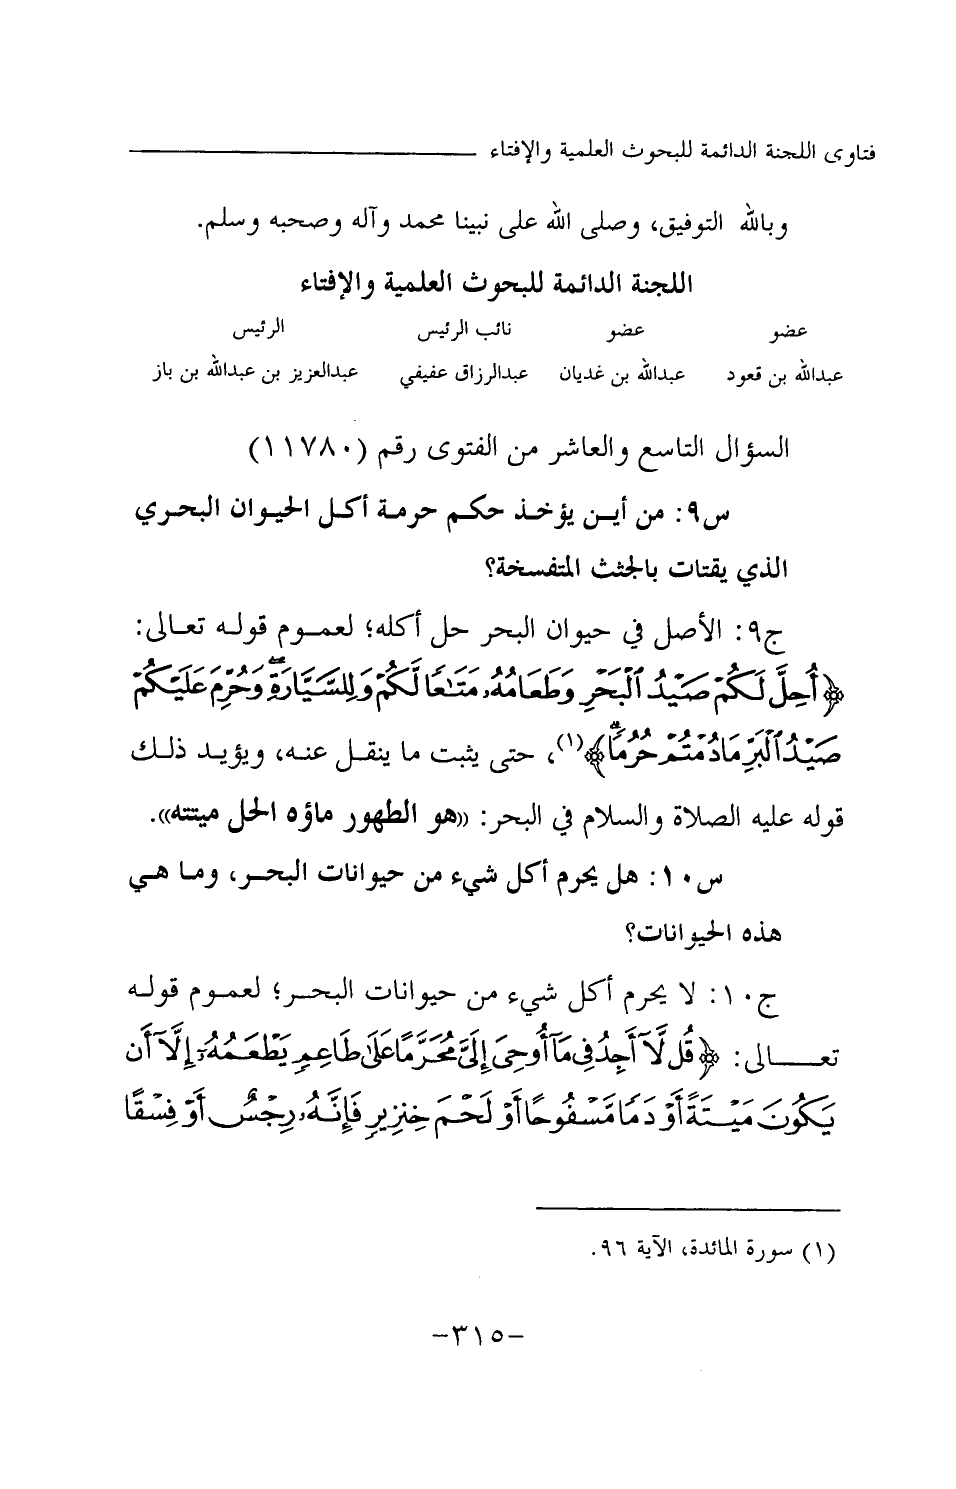 فتاوى اللجنة الدائمة للبحوث العلمية والإفتاء
وبالله التوفيق، وصلى الله على نبينا محمد وآله وصحبه وسلم.
اللجنة الدائمة للبحوث العلمية والإفتاء
عضو عضو نائب الرئيس الرئيس
عبدالله بن قعود عبدالله بن غديان عبدالرزاق عفيفي عبدالعزيز بن عبدالله بن باز
السؤال التاسع والعاشر من الفتوى رقم (١١٧٨٠)
س٩: من أين يؤخذ حكم حرمة أكل الحيوان البحري
الذي يقتات بالجثث المتفسخة؟
ج٩: الأصل في حيوان البحر حل أكله؛ لعموم قوله تعالى:
﴿أُحِلَّ لَكُمْ صَيْدُ ٱلْبَحْرِ وَطَعَامُهُۥ مَتَٰعًا لَّكُمْ وَلِلسَّيَّارَةِ ۖ وَحُرِّمَ عَلَيْكُمْ
صَيْدُ ٱلْبَرِّ مَا دُمْتُمْ حُرُمًا ۗ﴾(١)، حتى يثبت ما ينقل عنه، ويؤيد ذلك
قوله عليه الصلاة والسلام في البحر: «هو الطهور ماؤه الحل ميتته».
س١٠: هل يحرم أكل شيء من حيوانات البحر، وما هي
هذه الحيوانات؟
ج١٠: لا يحرم أكل شيء من حيوانات البحر؛ لعموم قوله
تعالى: ﴿قُل لَّآ أَجِدُ فِى مَآ أُوحِىَ إِلَىَّ مُحَرَّمًا عَلَىٰ طَاعِمٍ يَطْعَمُهُۥٓ إِلَّآ أَن
يَكُونَ مَيْتَةً أَوْ دَمًا مَّسْفُوحًا أَوْ لَحْمَ خِنزِيرٍ فَإِنَّهُۥ رِجْسٌ أَوْ فِسْقًا
(١) سورة المائدة، الآية ٩٦.
-٣١٥-